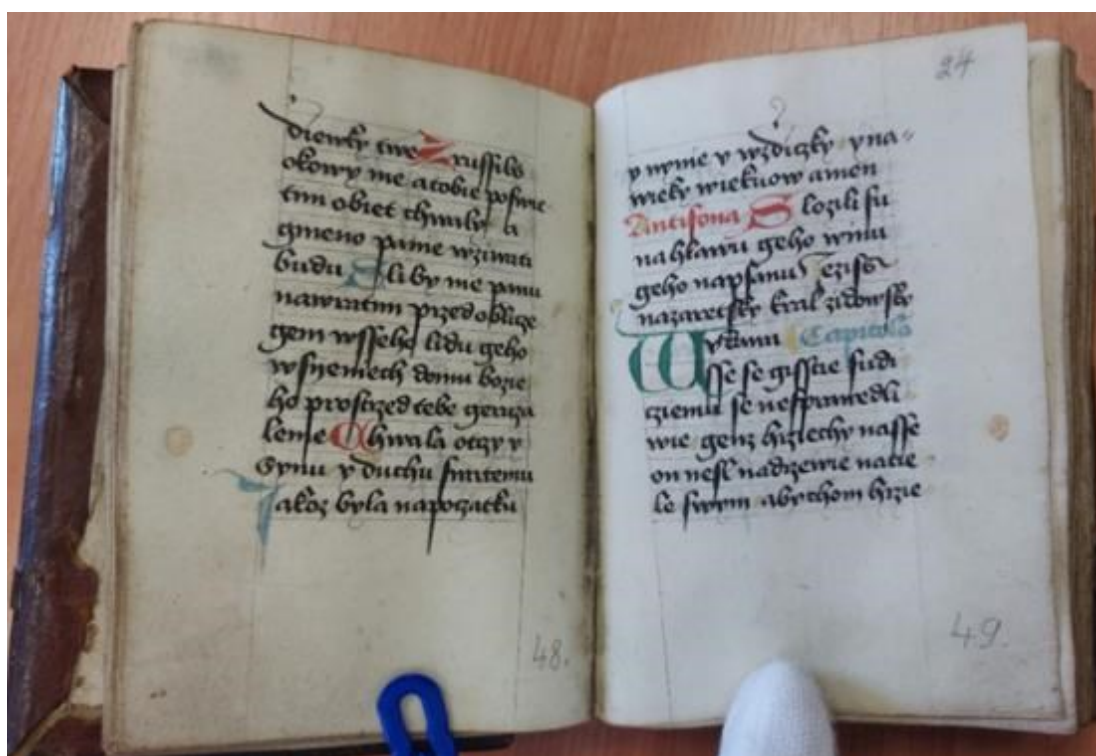 diewky twe Zrussils
okowy me a tobie poswie
tim obiet chwaly la
gmeno panie wziwati
budu Sliby me panu
nawratim przed oblicze
gem wsseho lidu geho
w sieniech domu bozie
ho prostrzed tebe geruza
leme Chwala otczy y
Synu y duchu swatemu
Jakoz byla napoczatku
48.
24
y nynie y wzdiczky yna=
wieky wiekuow amen
Antifona Slozili su
na hlawu geho winu
geho napsanu Jezissz
nazaretsky kral zidowsky
W ydanu Capitola
sse se gisstie sudi
cziemu se nesprawedli
wie genz hrziechy nasse
on nesl nadrzewie natie
le swym abychom hrzie
49.